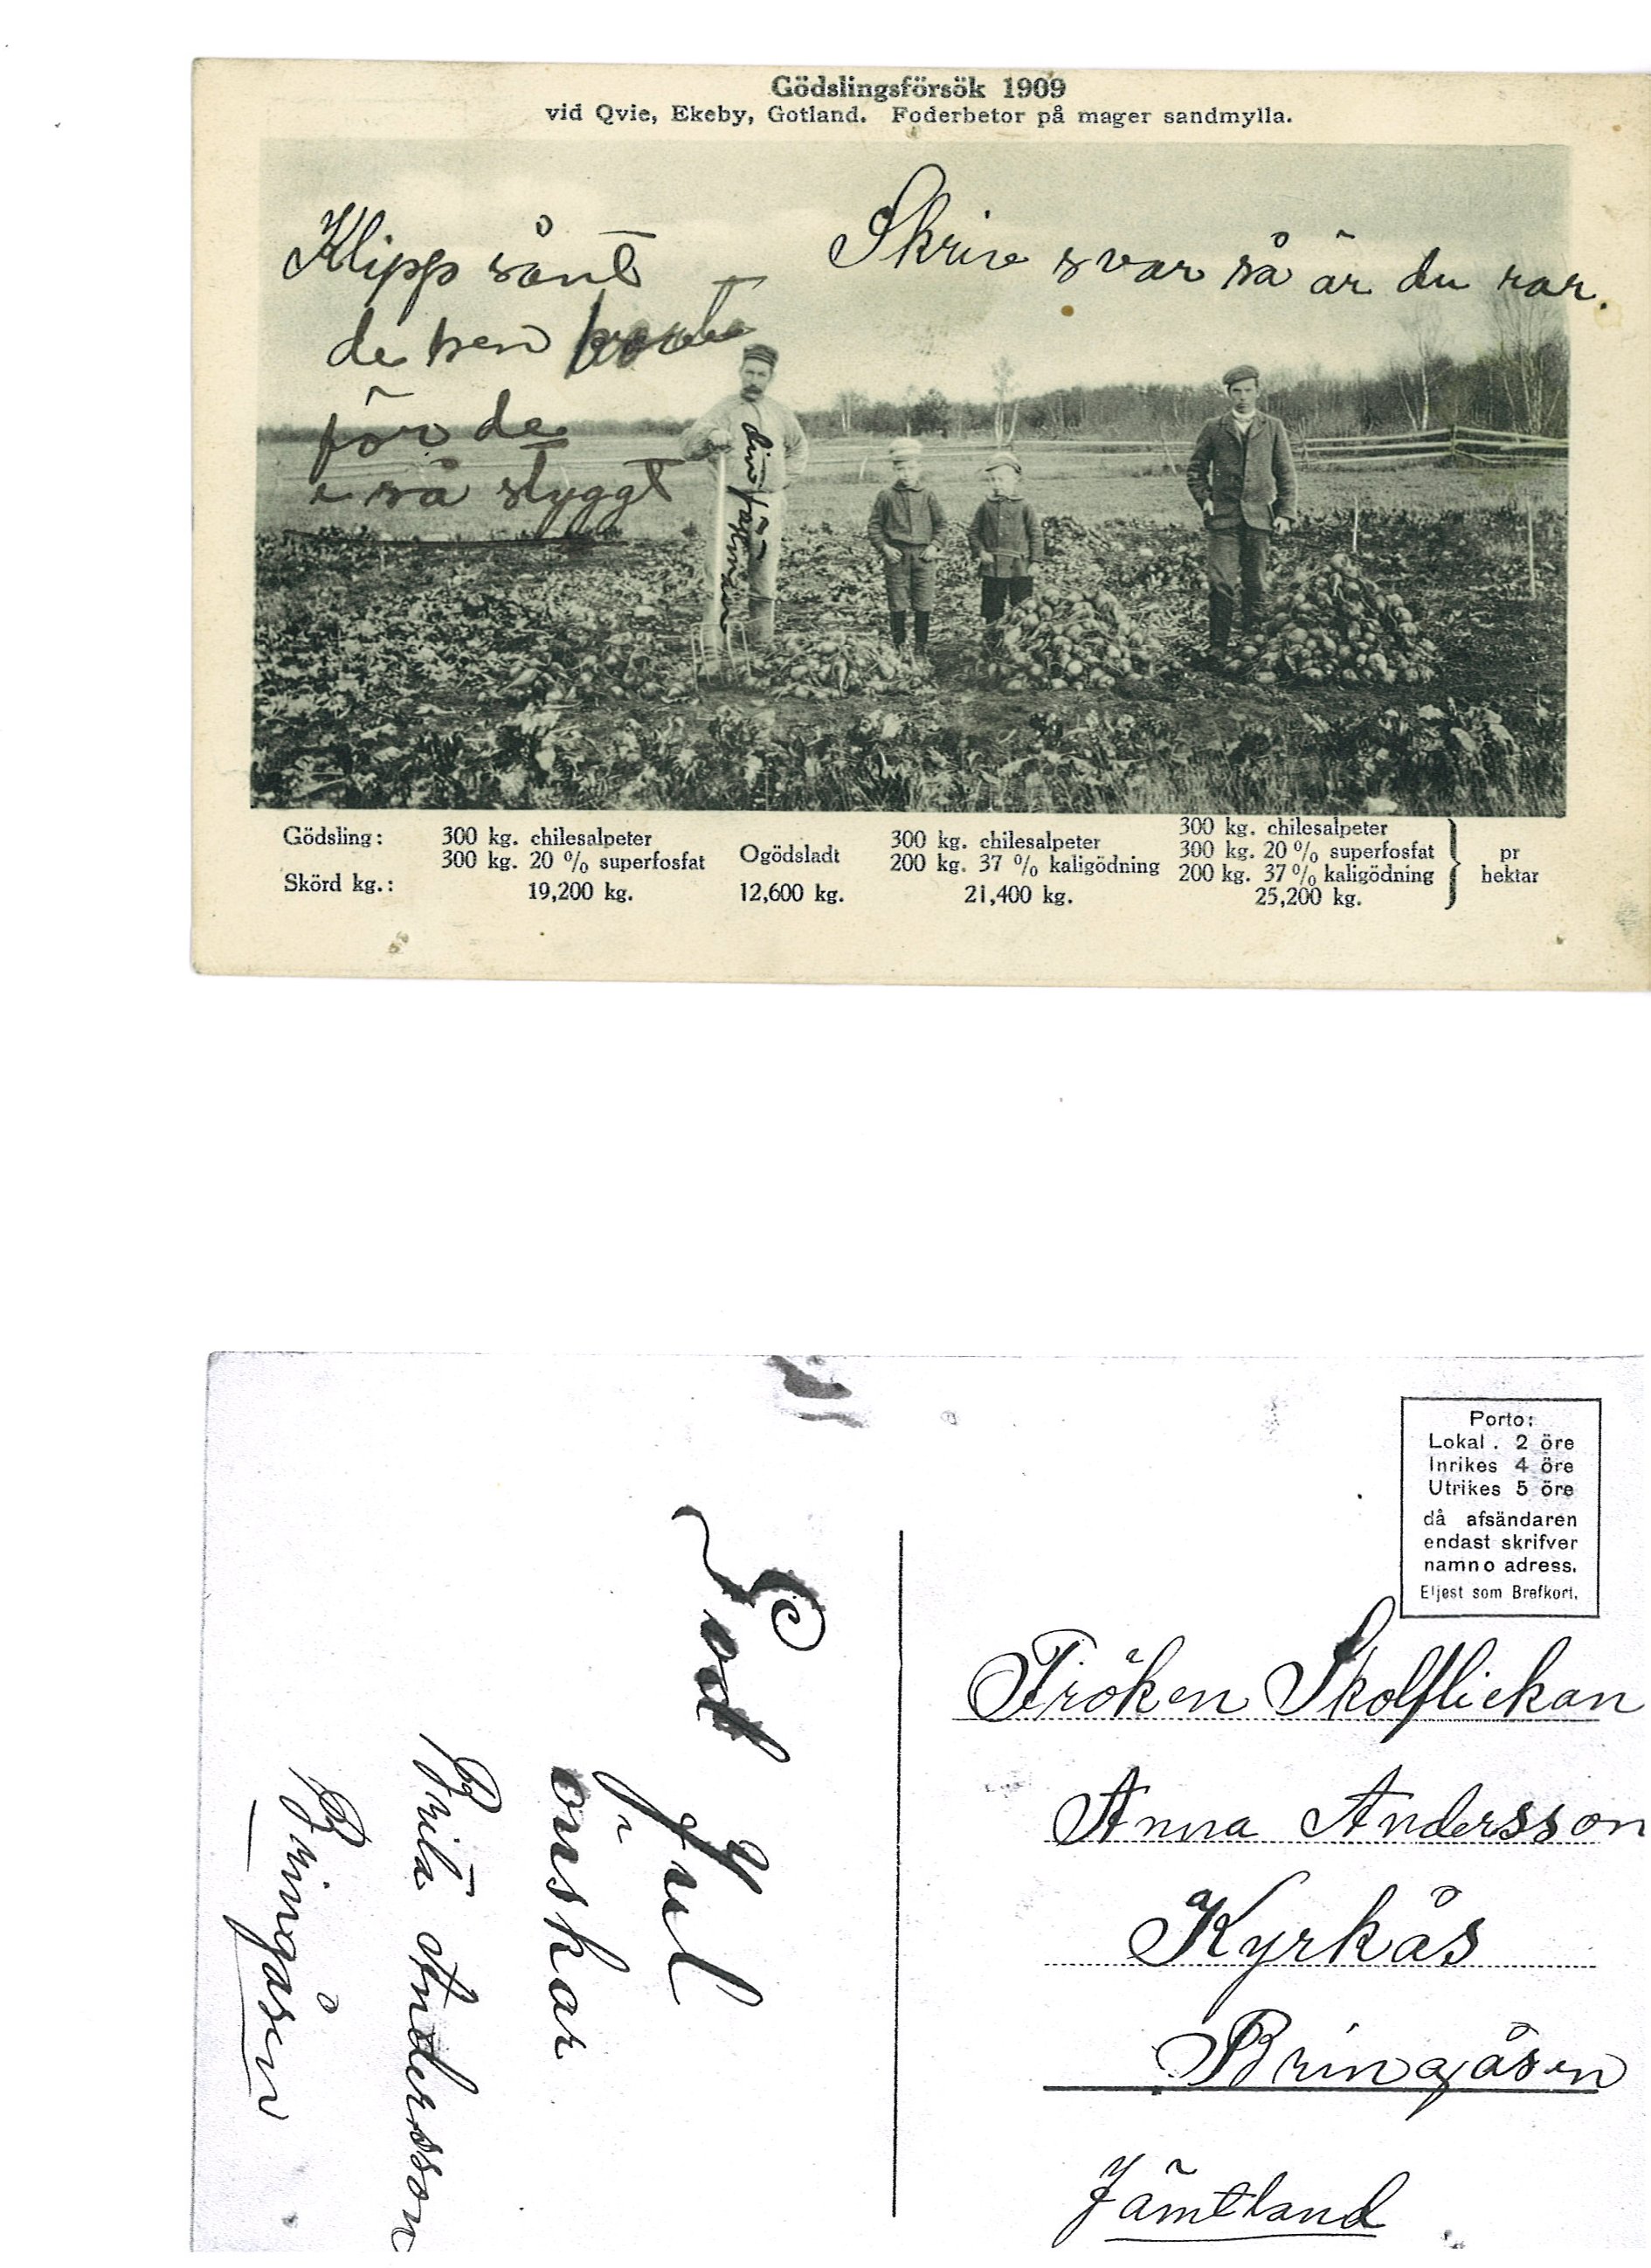 Gödslingsförsök 1909
vid Qvie, Ekeby, Gotland. Foderbetor på mager sandmylla.
Klipp sånt
Skriv svar så är du rar.
de
för de
e så styggt
din
Gödsling:
300 kg. chilesalpeter
300 kg. 20 % superfosfat
Skörd kg.:
19,200 kg.
Ogödsladt
12,600 kg.
300 kg. chilesalpeter
200 kg. 37 % kaligödning
21,400 kg.
300 kg. chilesalpeter
300 kg. 20 % superfosfat
200 kg. 37 % kaligödning
25,200 kg.
pr
hektar
God
Jul
önskar
Brita Andersson
Bringåsen
Porto:
Lokal . 2 öre
Inrikes 4 öre
Utrikes 5 öre
då afsändaren
endast skrifver
namn o adress.
Eljest som Brefkort.
Fröken Skolflickan
Anna Andersson
Kyrkås
Bringåsen
Jämtland